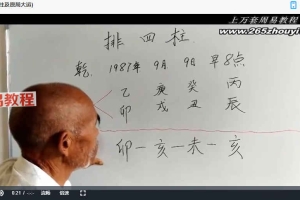 上万套周易教程
www.265zhouyi
排四柱
乾. 1987年 9月 9日 早8点
乙 庚 癸 丙
易教程
卯 戌 丑 辰
卯—亥—未—亥
倍速